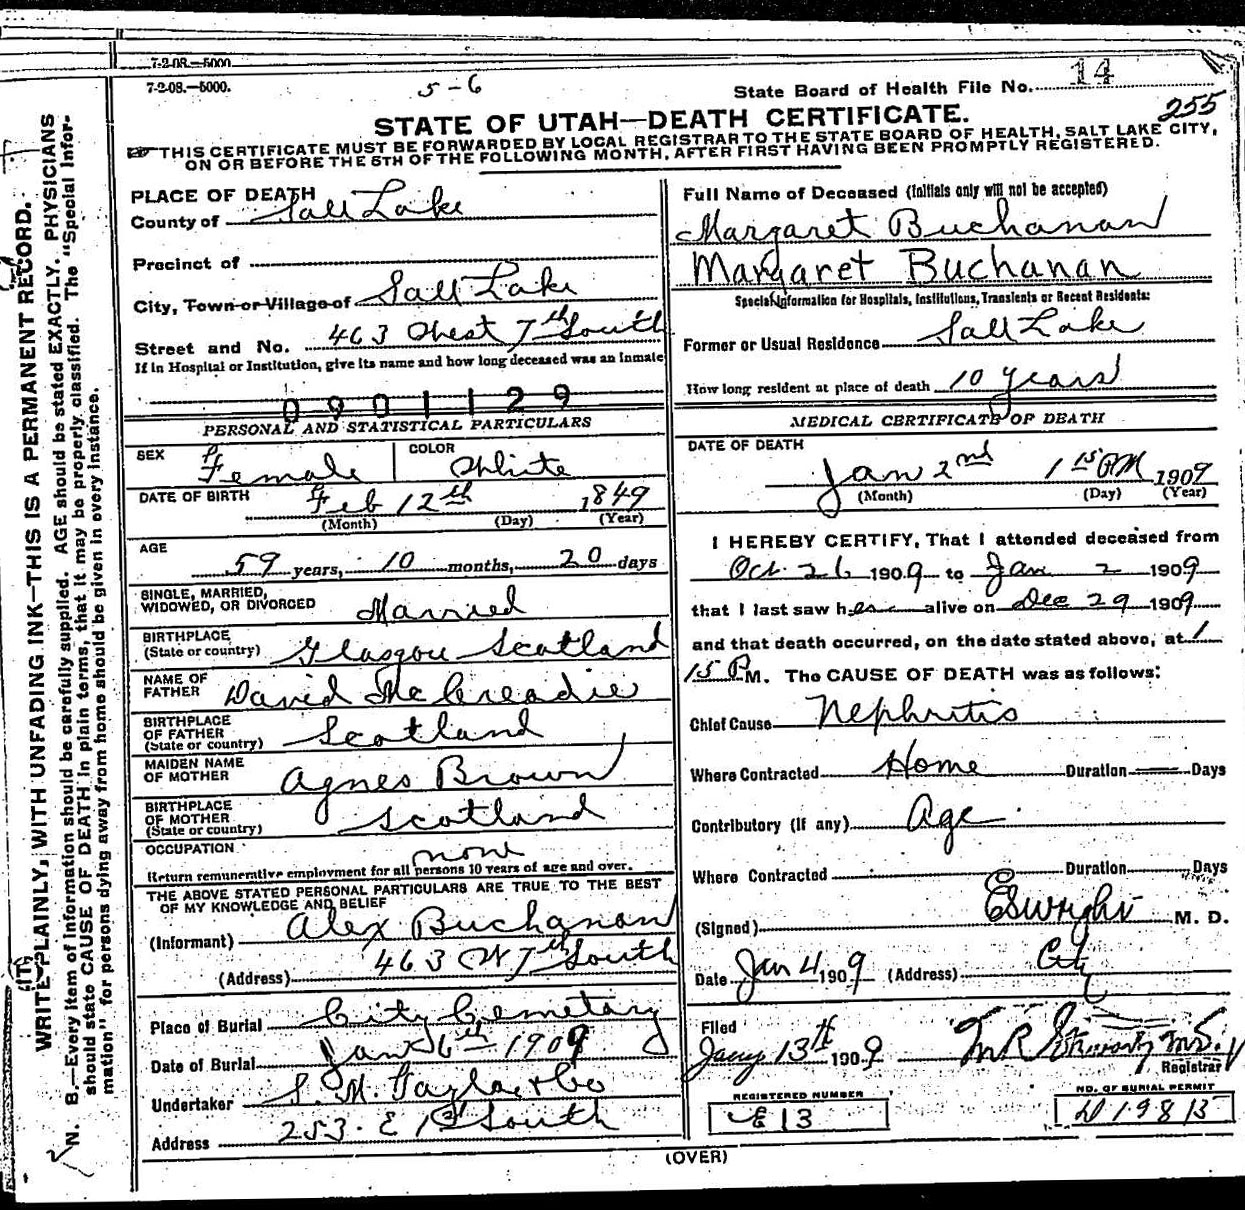 7-2-08.—5000.
7-2-08.—5000.
5-6
State Board of Health File No. 14
255
STATE OF UTAH—DEATH CERTIFICATE.
THIS CERTIFICATE MUST BE FORWARDED BY LOCAL REGISTRAR TO THE STATE BOARD OF HEALTH, SALT LAKE CITY,
ON OR BEFORE THE 5TH OF THE FOLLOWING MONTH, AFTER FIRST HAVING BEEN PROMPTLY REGISTERED.
WRITE PLAINLY, WITH UNFADING INK—THIS IS A PERMANENT RECORD.
N. B.—Every item of information should be carefully supplied. AGE should be stated EXACTLY. PHYSICIANS
should state CAUSE OF DEATH in plain terms, that it may be properly classified. The "Special Infor-
mation" for persons dying away from home should be given in every instance.
PLACE OF DEATH
County of Salt Lake
Precinct of
City, Town or Village of Salt Lake
Street and No. 463 West 7th South
If in Hospital or Institution, give its name and how long deceased was an inmate
0901129
PERSONAL AND STATISTICAL PARTICULARS
SEX Female COLOR White
DATE OF BIRTH Feb 12th 1849
(Month) (Day) (Year)
AGE
59 years, 10 months, 20 days
SINGLE, MARRIED,
WIDOWED, OR DIVORCED Married
BIRTHPLACE
(State or country) Glasgow Scotland
NAME OF
FATHER David McCreadie
BIRTHPLACE
OF FATHER
(State or country) Scotland
MAIDEN NAME
OF MOTHER Agnes Brown
BIRTHPLACE
OF MOTHER
(State or country) Scotland
OCCUPATION none
Return remunerative employment for all persons 10 years of age and over.
THE ABOVE STATED PERSONAL PARTICULARS ARE TRUE TO THE BEST
OF MY KNOWLEDGE AND BELIEF
(Informant) Alex Buchanan
(Address) 463 W 7th South
Place of Burial City Cemetary
Date of Burial Jan 6th 1909
Undertaker S. M. Taylor & Co
Address 253 E 1st South
Full Name of Deceased (Initials only will not be accepted)
Margaret Buchanan
Margaret Buchanan
Special Information for Hospitals, Institutions, Transients or Recent Residents:
Former or Usual Residence Salt Lake
How long resident at place of death 10 years
MEDICAL CERTIFICATE OF DEATH
DATE OF DEATH
Jan 2nd 1 15 PM 1909
(Month) (Day) (Year)
I HEREBY CERTIFY, That I attended deceased from
Oct. 26 1909 to Jan 2 1909
that I last saw her alive on Dec 29 1909
and that death occurred, on the date stated above, at 1
15 P M. The CAUSE OF DEATH was as follows:
Chief Cause Nephritis
Where Contracted Home Duration Days
Contributory (if any) Age
Where Contracted Duration Days
(Signed) M. D.
Date Jan 4 1909 (Address) City
Filed
Jany 13th 1909
Registrar
REGISTERED NUMBER
E 13
NO. OF BURIAL PERMIT
(OVER)